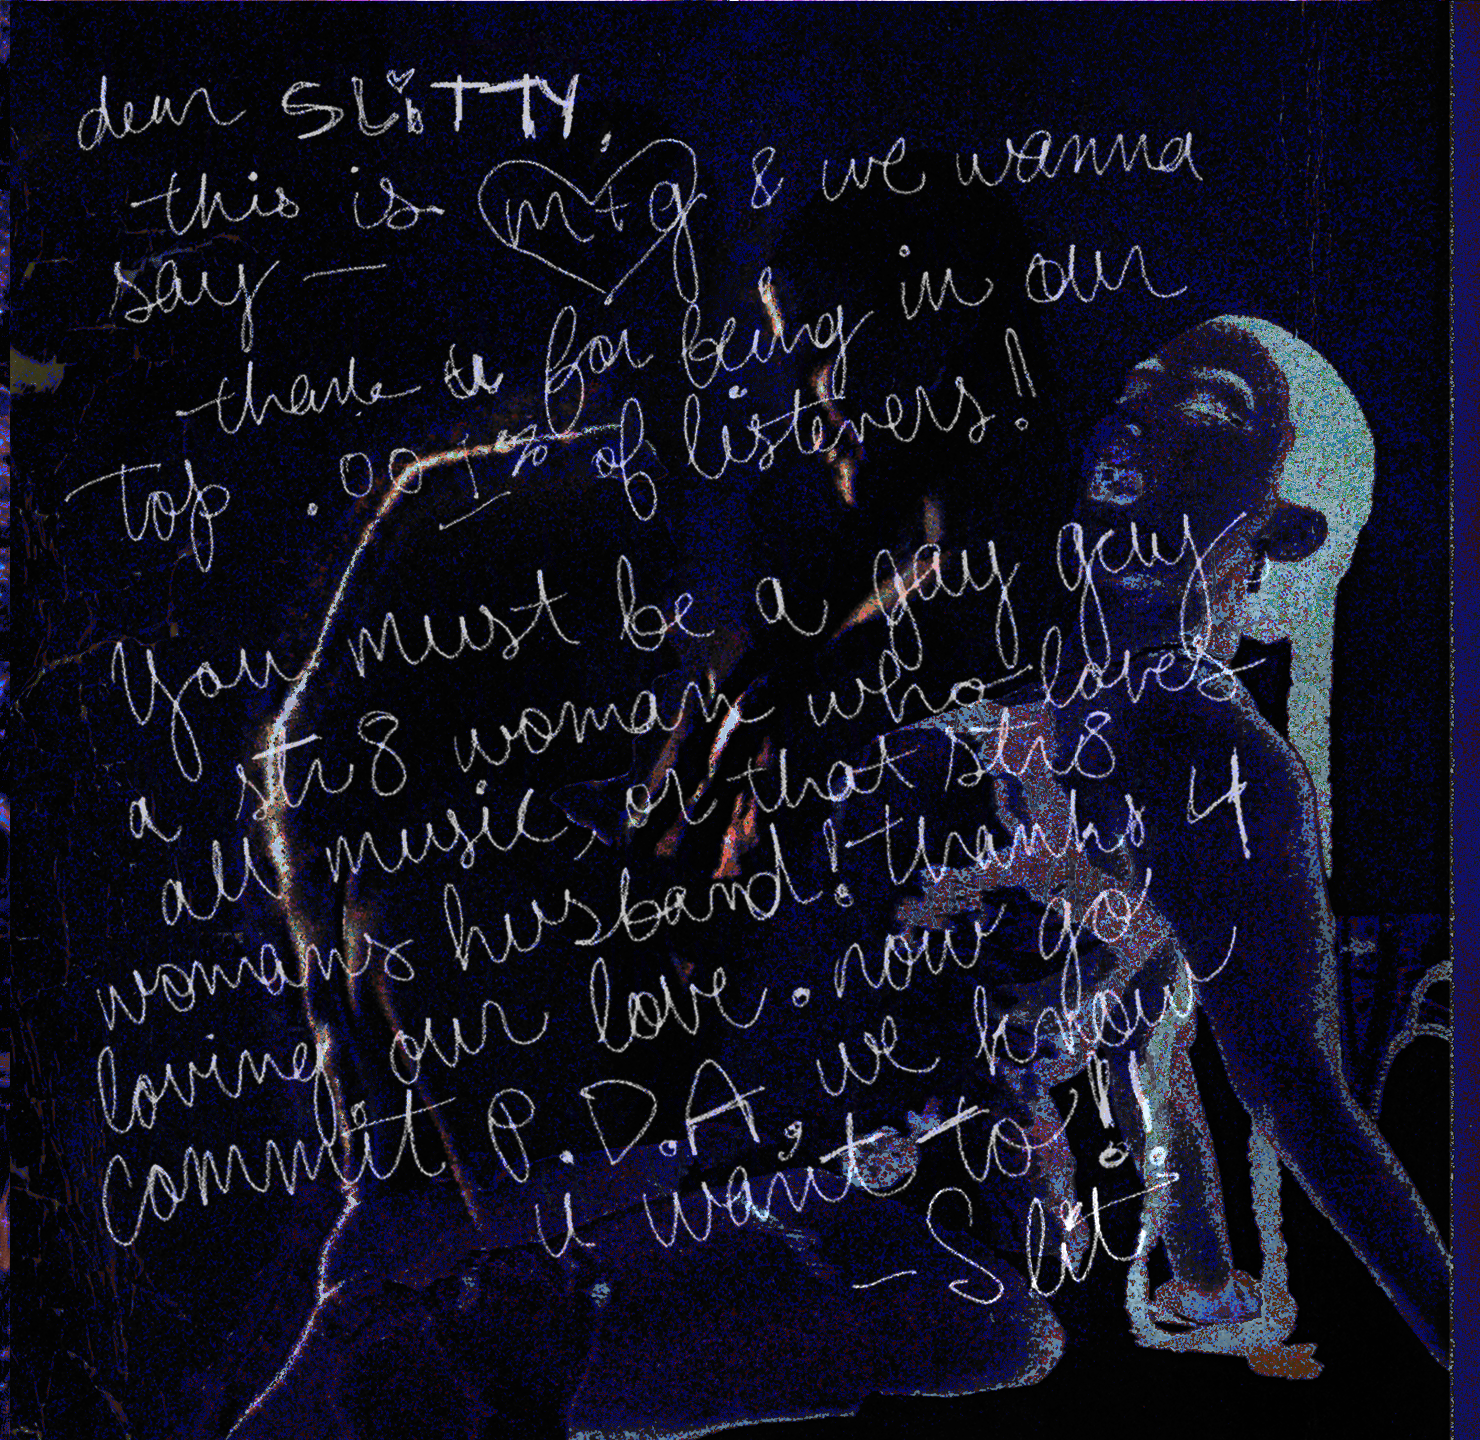 dear SLiTTY,
this is m+g & we wanna
say —
thank u for being in our
top .001% of listeners!
you must be a gay guy
a str8 woman who loves
all music, or that str8
womans husband! thanks 4
loving our love. now go
commit P.D.A, we know
u want to!!
- Slit